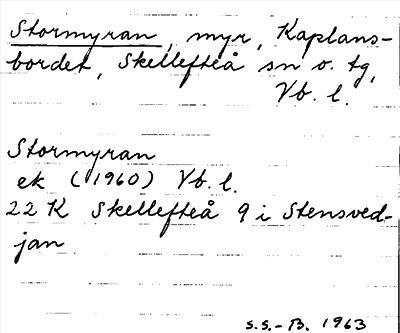 Stormyran, myr, Kaplans-
bordet, Skellefteå sn o. tg,
Vb. l.
Stormyran
ek (1960) Vb. l.
22 K Skellefteå 9 i Stensved-
jan
S.S.-B. 1963